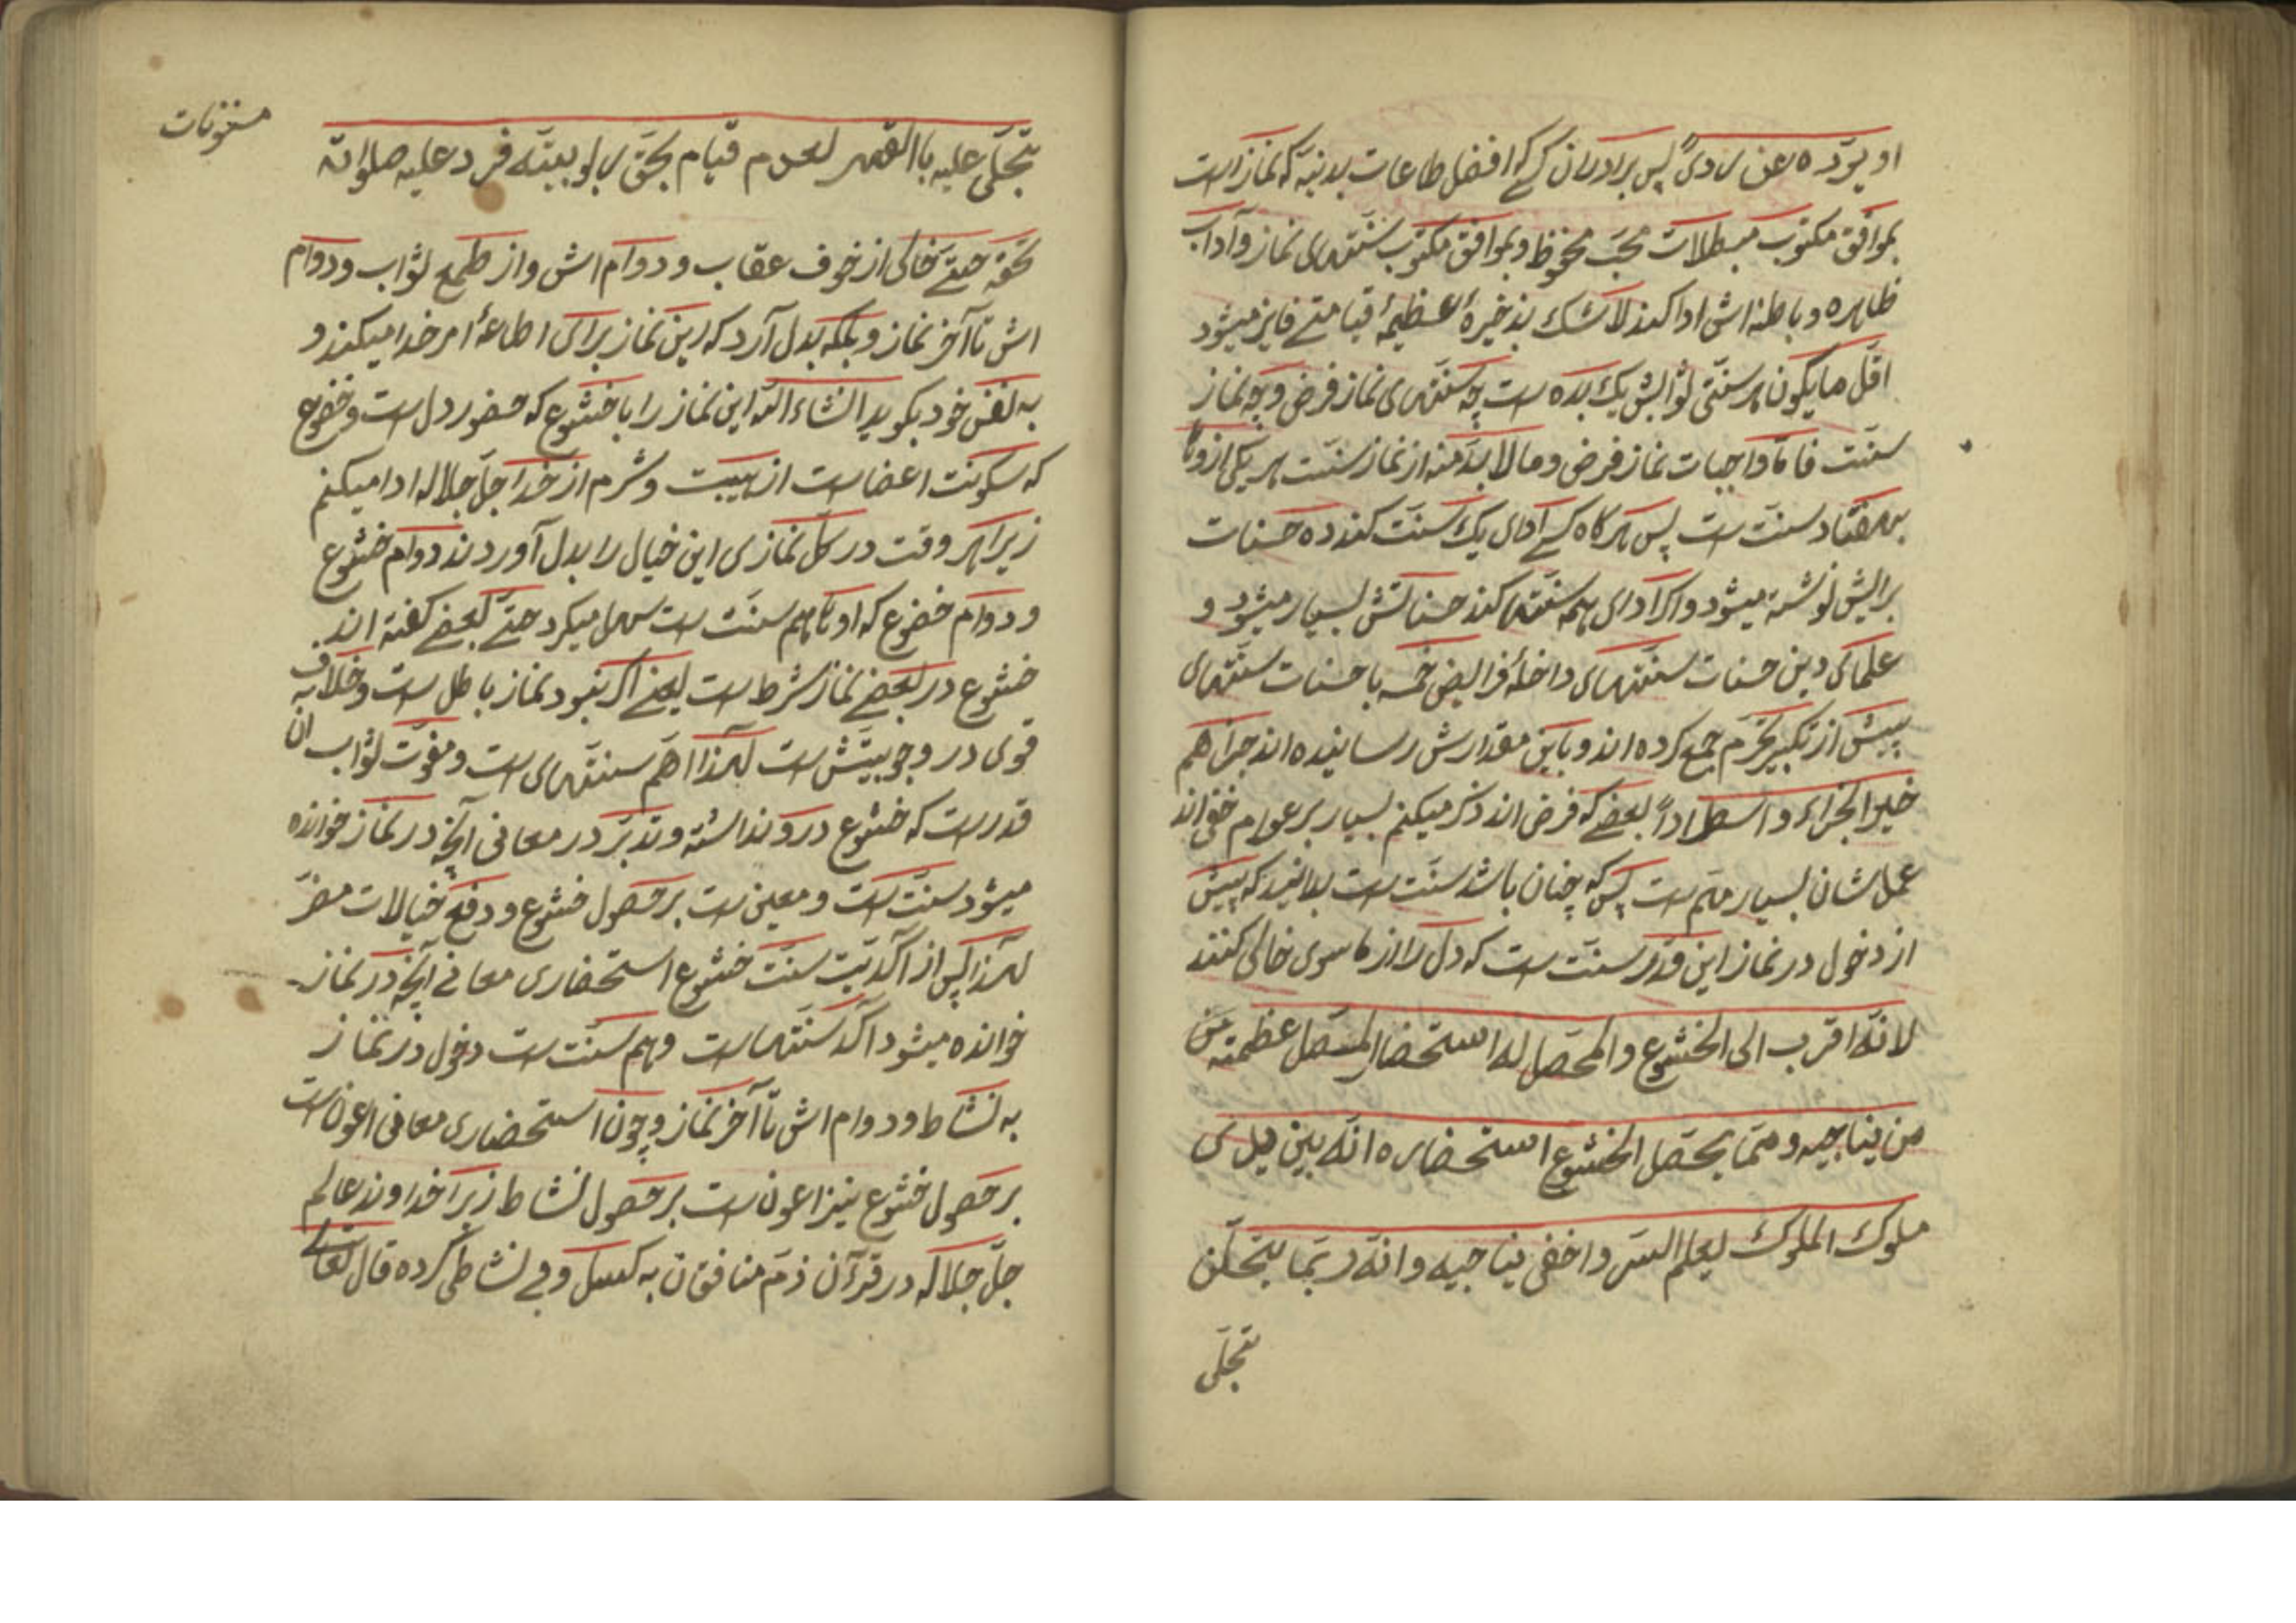 او یرده عن ردی پس برادران کسی که افضل طاعات بدنیه که نماز است
بموافق مکتوب مبطلات محفوظ و بموافق مکتوب سنتهای نماز و آداب
ظاهره و باطنه اش ادا کند لا شک بذخیرهٔ عظیمهٔ قیامتی فایز میشود
اقل ما یکون هر سنتی ثوابش یک بده است چه سنتهای نماز فرض و چه نماز
سنت فاما واجبات نماز فرض و ما لا بد منه از نماز سنت هر یکی از وها
بهفتاد سنت است پس هرکاه کسی ادای یک سنت کند ده حسنات
برایش نوشته میشود و اکر ادای همه سنتها کند حسناتش بسیار میشود و
علمای دین حسنات سنتهای داخلهٔ فرایض خمسه با حسنات سنتهای
پیش از تکبیر تحرم جمع کرده اند و باین مقدارش رسانیده اند جزاهم
خیر الجزاء و استطرادا بعضی که فرض اند ذکر میکنم بسیار بر عوام خفی اند
عملشان بسیار مهم است پس که چنان باشد سنت است بدانید که پیش
از دخول در نماز این قدر سنت است که دل را از ما سوی خالی کنند
لانه اقرب الی الخشوع و المحصل له استحضار عظمته من
من یناجیه و مما یحصل الخشوع استحضاره انه بین یدی
ملوک الملوک لیعلم السر و اخفی یناجیه و انه ربما یتجلی
تجلی
مسنونات
تتجلی علیه بالقهر لعدم قیام بحق ربوبیته فرد علیه صلواته
تحقه حتی خالی از خوف عقاب و دوام اش و از طمع ثواب و دوام
اش تا آخر نماز و بلکه بدل آرد که این نماز برای اطاعهٔ امر خدا میکند و
به نفس خود بکوید انشاء الله این نماز را با خشوع که حضور دل است و خضوع
که سکونت اعضا است از هیبت و شرم از خدا جل جلاله ادا میکنم
زیرا هر وقت در کل نمازی این خیال را بدل آوردند دوام خشوع
و دوام خضوع که اوها هم سنت است سهل میکرد حتی بعضی کفته اند
خشوع در بعضی نماز شرط است یعنی اکر نبود نماز باطل است و خلاف به
قوی در وجوبیتش است لهذا اهم سنتهای است و مفوت ثواب ان
قدر است که خشوع درو نداشته و تدبر در معانی آنچه در نماز خوانده
میشود سنت است و معین است بر حصول خشوع و دفع خیالات مضر
لهذا پس از آکدیت سنت خشوع استحضاری معانی آنچه در نماز
خوانده میشود آکد سنتها است و هم سنت است دخول در نماز
به نشاط و دوام اش تا آخر نماز و چون استحضاری معانی اعون است
بر حصول خشوع نیز اعون است بر حصول نشاط زیرا خداوند عالم
جل جلاله در قرآن ذم منافقان به کسل و بی نشاطی کرده قال تعالی